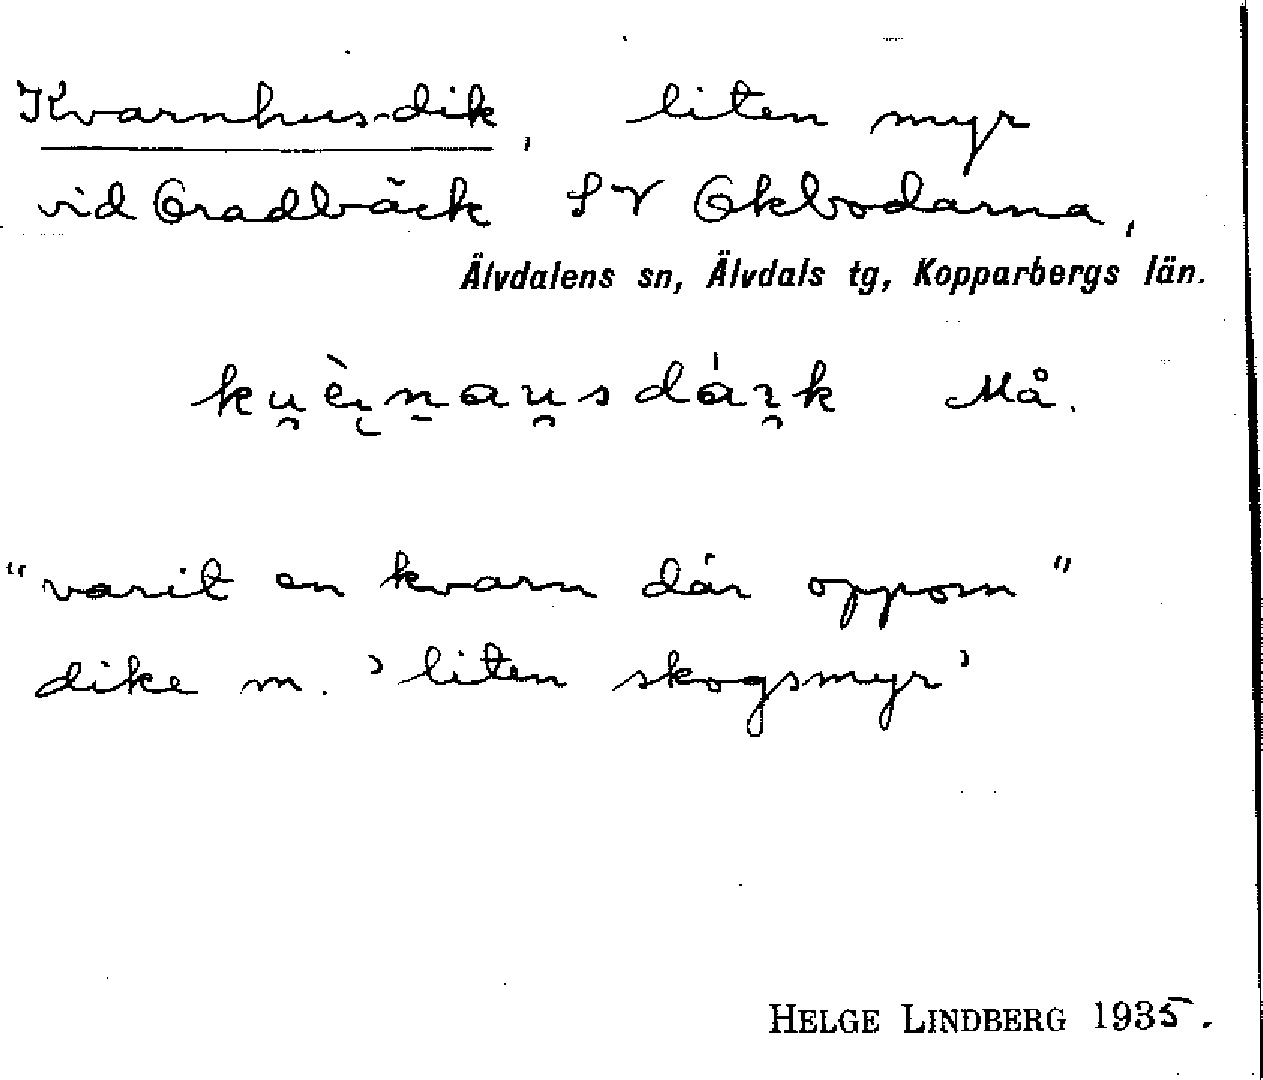 Kvarnhus-dik, liten myr
vid Oradbäck SV Okbodarna,
Älvdalens sn, Älvdals tg, Kopparbergs län.
Må.
"varit en kvarn där oppom"
dike m. 'liten skogsmyr'
HELGE LINDBERG 1935.